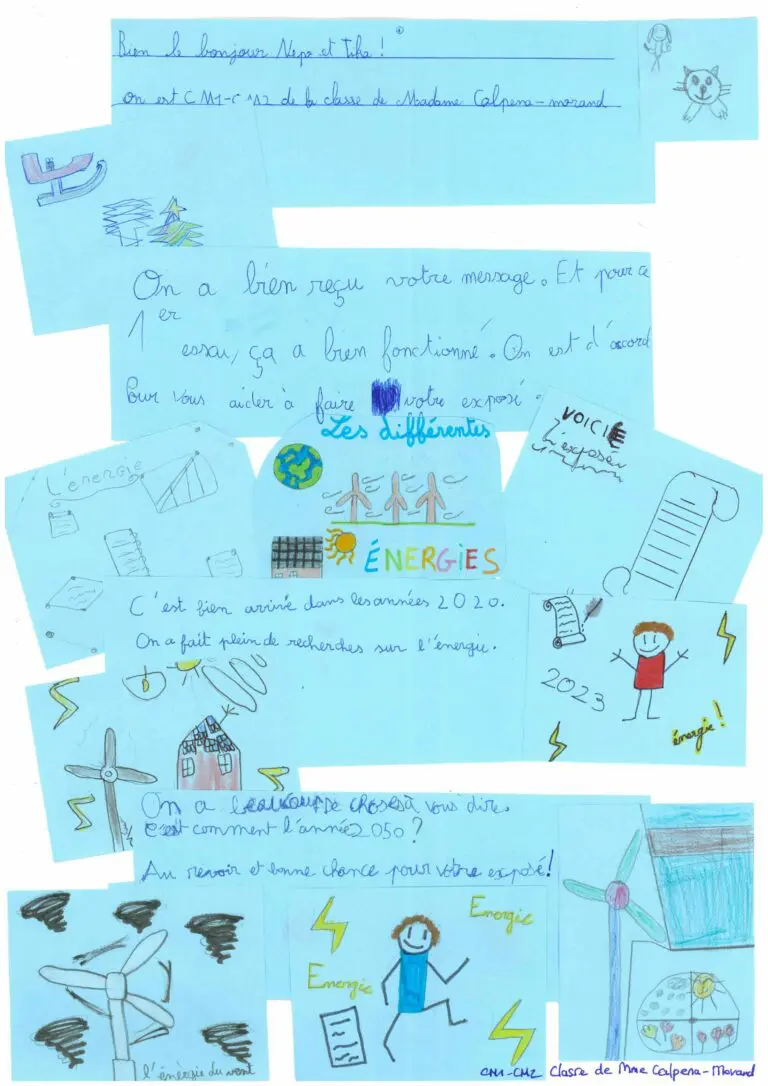 Bien le bonjour Nepo et Tika !
on est CM1-CM2 de la classe de Madame Calpena-morand
On a bien reçu votre message. Et pour ce
1er essai, ça a bien fonctionné. On est d'accord
Pour vous aider à faire votre exposé.
L'énergie
Les différentes
ÉNERGIES
VOICIE
l'exposée
C'est bien arrivé dans les années 2020.
On a fait plein de recherches sur l'énergie.
2023
énergie !
On a beaucoup de choses à vous dire
c'est comment l'année 2050 ?
Au revoir et bonne chance pour votre exposé !
l'énèrgie du vent
Energie
Energie
CM1-CM2 Classe de Mme Calpena-Morand